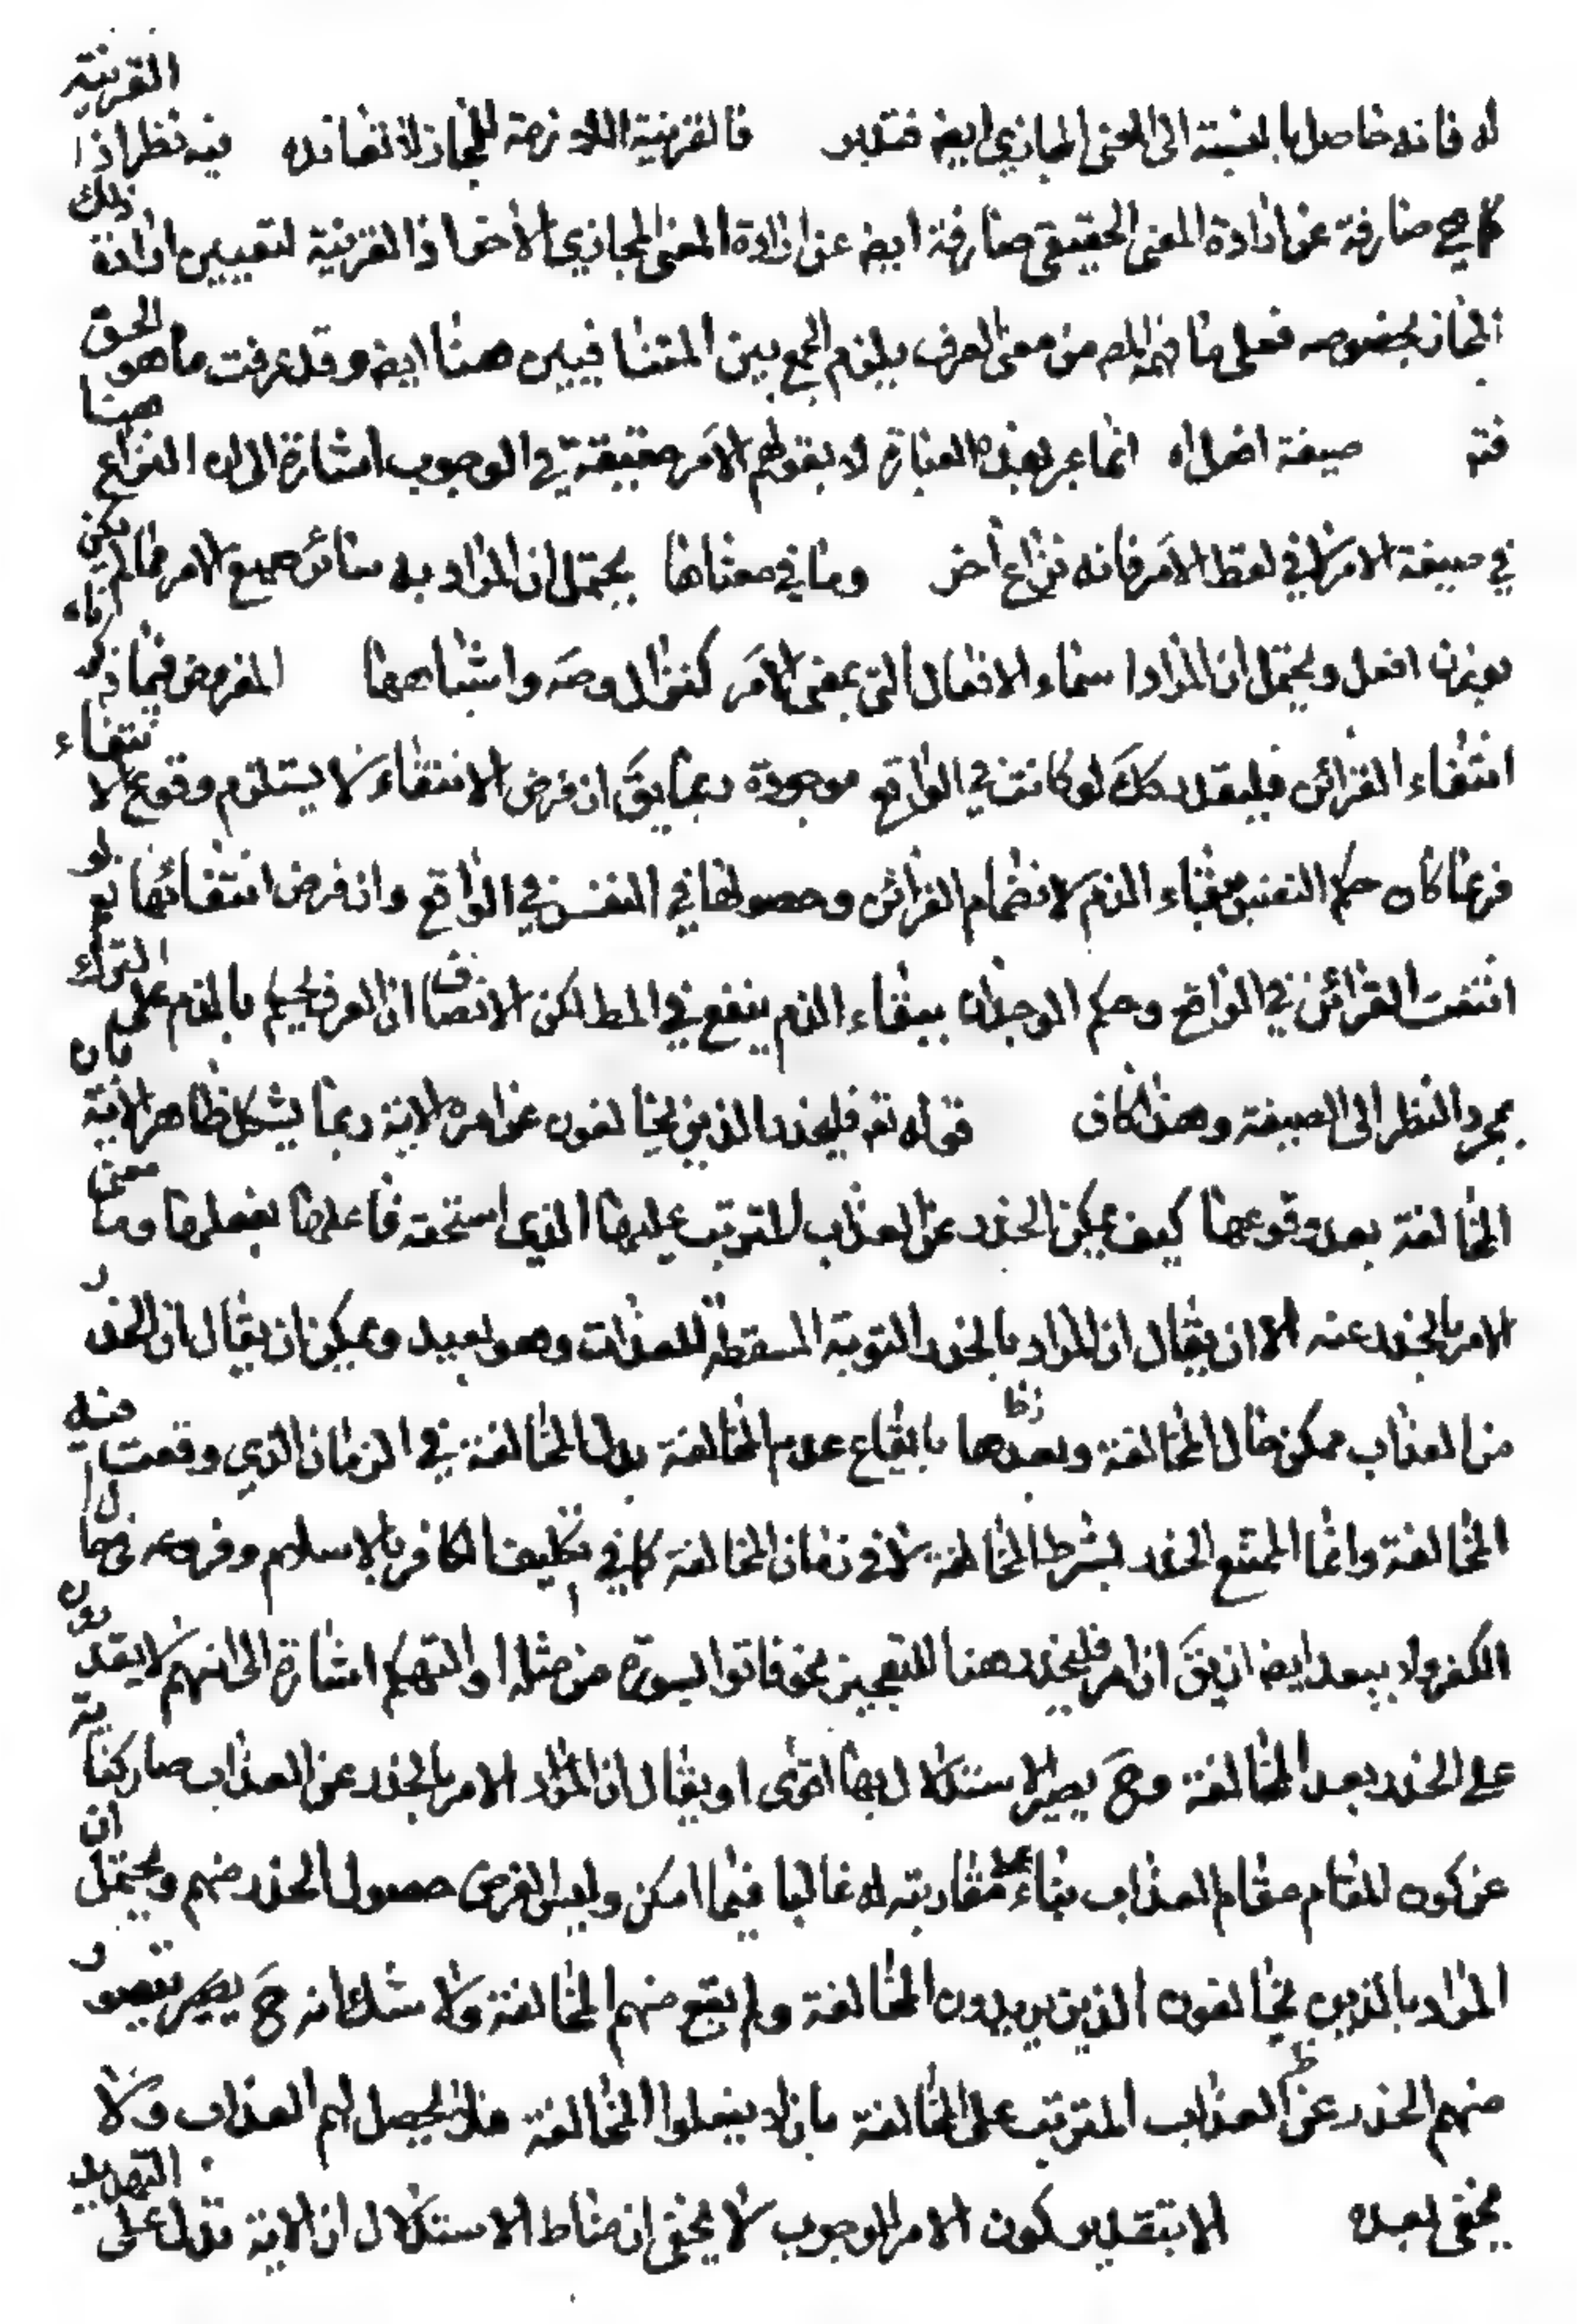 له فانه حاصل بالنسبة الى المعنى المجازي ايضه فتدبر فالقرينة اللازمة للمجاز لا تعانده فيه نظر اذ القرينة
كما هي صارفة عن ارادة المعنى الحقيقي صارفة ايضه عن ارادة المعنى المجازي الآخر اذ القرينة لتعيين ارادة ذلك
المجاز بخصوصه فعلى ما فهمه المصه من معنى العرف يلزم الجمع بين المتنافيين هنا ايضه وقد عرفت ما هو الحق
فته صيغة افعل اه انما عبر بهذه العبارة لا بقولهم الامر حقيقة في الوجوب اشارة الى ان النزاع هنا
في صيغة الامر لا في لفظ الامر فانه نزاع آخر وما في معناها يحتمل ان المراد به سائر صيغ الامر مما لم يكن
بوزن افعل ويحتمل ان المراد اسماء الافعال التي بمعنى الامر كنزال وصه واشباهها المفروض فيما ذكر
انتفاء القرائن فليقدر كك لو كانت في الواقع موجودة ربما يقَ ان فرض الانتفاء لا يستلزم وقوع الانتفاء
فربما كان حكم النفس ببقاء الذم لانضمام القرائن وحصولها في النفس في الواقع وان فرض انتفائها نعم لو
انتفت القرائن في الواقع وحكم الوجدان ببقاء الذم ينفع في المط لكن الانصاف ان العرف يحكم بالذم على الترك
بمجرد النظر الى الصيغة وهذا كاف قوله تعه فليحذر الذين يخالفون عن امره الاية ربما يشكل ظاهر الاية بان
المخالفة بعد وقوعها كيف يمكن الحذر عن العذاب المترتب عليها الذي استحقه فاعلها بفعلها وما معنى
الامر بالحذر عنه الا ان يقال ان المراد بالحذر التوبة المسقطة للعذاب وهو بعيد ويمكن ان يقال ان الحذر
من العذاب ممكن حال المخالفة وبعدها بايقاع عدم المخالفة بدل المخالفة في الزمان الذي وقعت فيه
المخالفة وانما الممتنع الحذر بشرط المخالفة لا في زمان المخالفة كما في تكليف الكافر بالاسلام وفروعه في حال
الكفر ولا يبعد ايضه ان يقَ ان امر فليحذر هنا للتعجيز نحو فاتوا بسورة من مثله او التهكم اشارة الى انهم لا يقدرون
على الحذر بعد المخالفة وحَ يصير الاستدلال بها اقوى او يقال ان المراد الامر بالحذر عن العذاب صار كناية
عن كون المقام مقام العذاب بناء على مقارنته له غالبا فيما امكن وليس الغرض حصول الحذر منهم ويحتمل ان
المراد بالذين يخالفون الذين يريدون المخالفة ولم يقع منهم المخالفة ولا شك انه حَ يصير تصور
منهم الحذر عن العذاب المترتب على المخالفة بان لا يفعلوا المخالفة فلا يحصل لهم العذاب ولا
يخفى بعده الا بتقدير كون الامر للوجوب لا يخفى ان مناط الاستدلال ان الاية تدل على التهديد